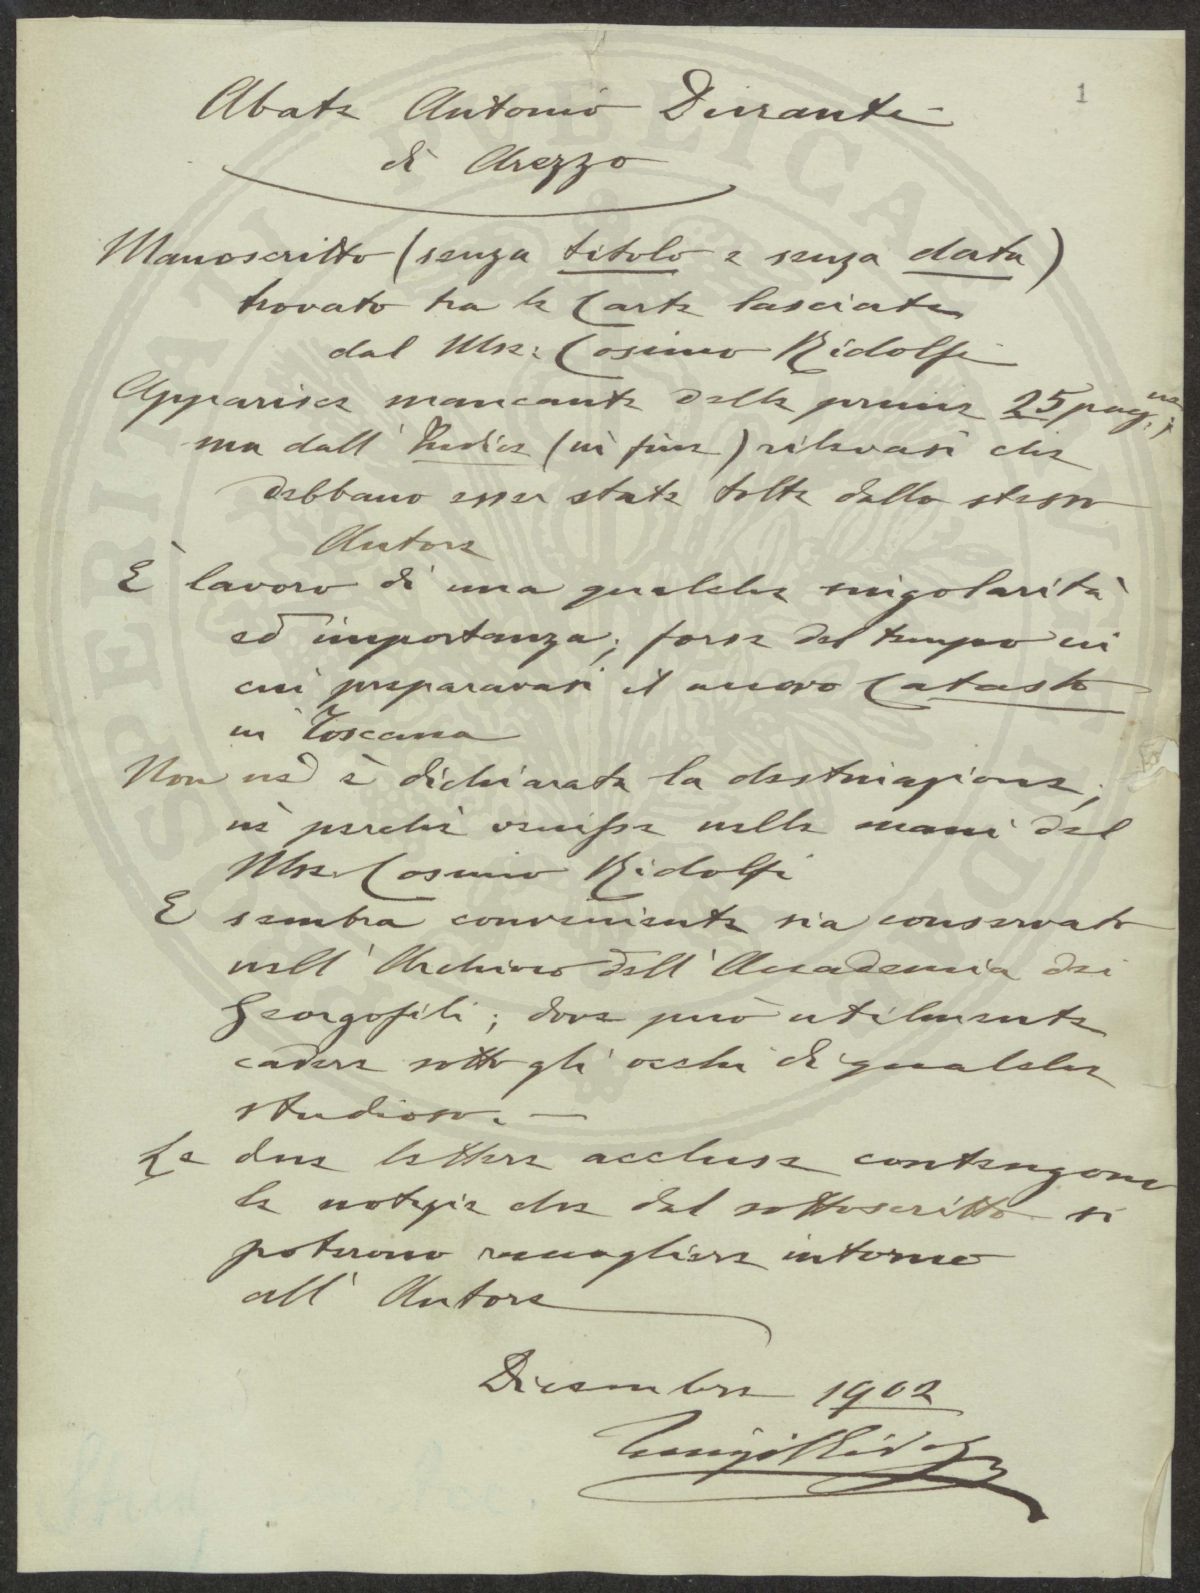 1
Abate Antonio Durante
di Arezzo
Manoscritto (senza titolo e senza data)
trovato tra le Carte lasciate
dal Mse. Cosimo Ridolfi
Apparisce mancante delle prime 25 pag.ne;
ma dall' Indice (in fine) rilevasi che
debbano esser state tolte dallo stesso
Autore
È lavoro di una qualche singolarità
ed importanza; forse del tempo in
cui preparavasi il nuovo Catasto
in Toscana
Non ne è dichiarata la destinazione;
nè perchè venisse nelle mani del
Mse. Cosimo Ridolfi
E sembra conveniente sia conservato
nell' Archivio dell' Accademia dei
Georgofili; dove può utilmente
cadere sotto gli occhi di qualche
studioso. —
Le due lettere accluse contengono
le notizie che dal sottoscritto si
poterono raccogliere intorno
all' Autore
Dicembre 1902
Luigi Ridolfi